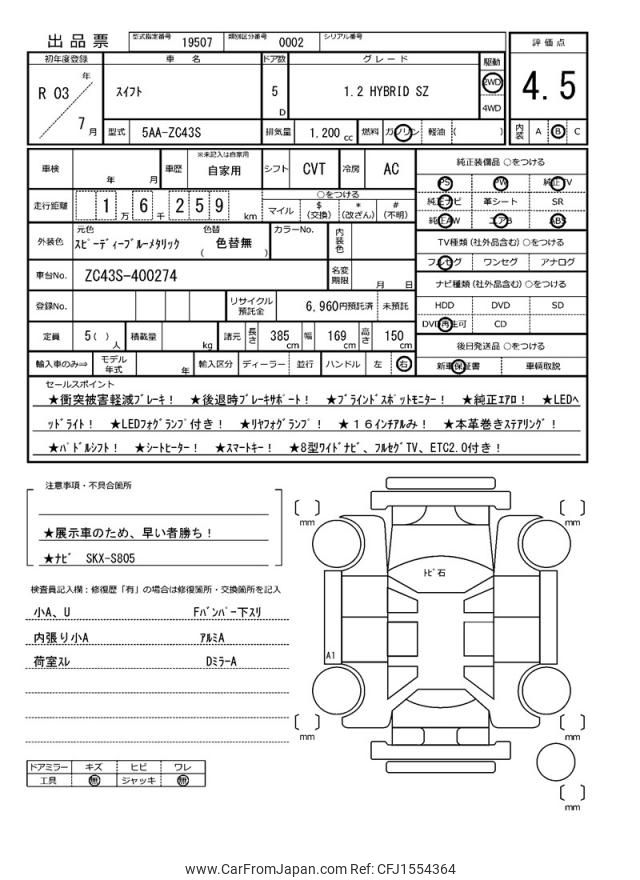 出品票 型式指定番号 19507 類別区分番号 0002 シリアル番号
評価点
4.5
内装 A B C
初年度登録 車名 ドア数 グレード 駆動
R 03 年 7 月
スイフト 5 D 1.2 HYBRID SZ 2WD 4WD
型式 5AA-ZC43S 排気量 1.200 cc 燃料 ガソリン 軽油 ( )
車検 年 月 車歴 ※未記入は自家用 自家用 シフト CVT 冷房 AC
走行距離 1万6千259 km ○をつける
マイル $(交換) *(改ざん) #(不明)
外装色 元色 スピーディーブルーメタリック 色替 ( 色替無 ) カラーNo. 内装色
車台No. ZC43S-400274 名変期限 月 日
登録No. リサイクル預託金 6,960円預託済 未預託
定員 5( )人 積載量 kg 諸元 長さ 385 cm 幅 169 cm 高さ 150 cm
輸入車のみ⇒ モデル年式 年 輸入区分 ディーラー 並行 ハンドル 左 右
純正装備品 ○をつける
PS PW 純正TV
純正ナビ 革シート SR
純正AW エアB ABS
TV種類(社外品含む) ○をつける
フルセグ ワンセグ アナログ
ナビ種類(社外品含む) ○をつける
HDD DVD SD
DVD再生可 CD
後日発送品 ○をつける
新車保証書 車輌取説
セールスポイント
★衝突被害軽減ブレーキ! ★後退時ブレーキサポート! ★ブラインドスポットモニター! ★純正エアロ! ★LEDヘ
ッドライト! ★LEDフォグランプ付き! ★リヤフォグランプ! ★16インチアルミ! ★本革巻きステアリング!
★パドルシフト! ★シートヒーター! ★スマートキー! ★8型ワイドナビ、フルセグTV、ETC2.0付き!
注意事項・不具合箇所
★展示車のため、早い者勝ち!
★ナビ SKX-S805
検査員記入欄:修復歴「有」の場合は修復箇所・交換箇所を記入
小A、U Fバンパー下スリ
内張り小A アルミA
荷室スレ DミラーA
ドアミラー キズ ヒビ ワレ
工具 無 ジャッキ 無
mm mm
トビ石
A1
mm mm
mm
www.CarFromJapan.com Ref: CFJ1554364